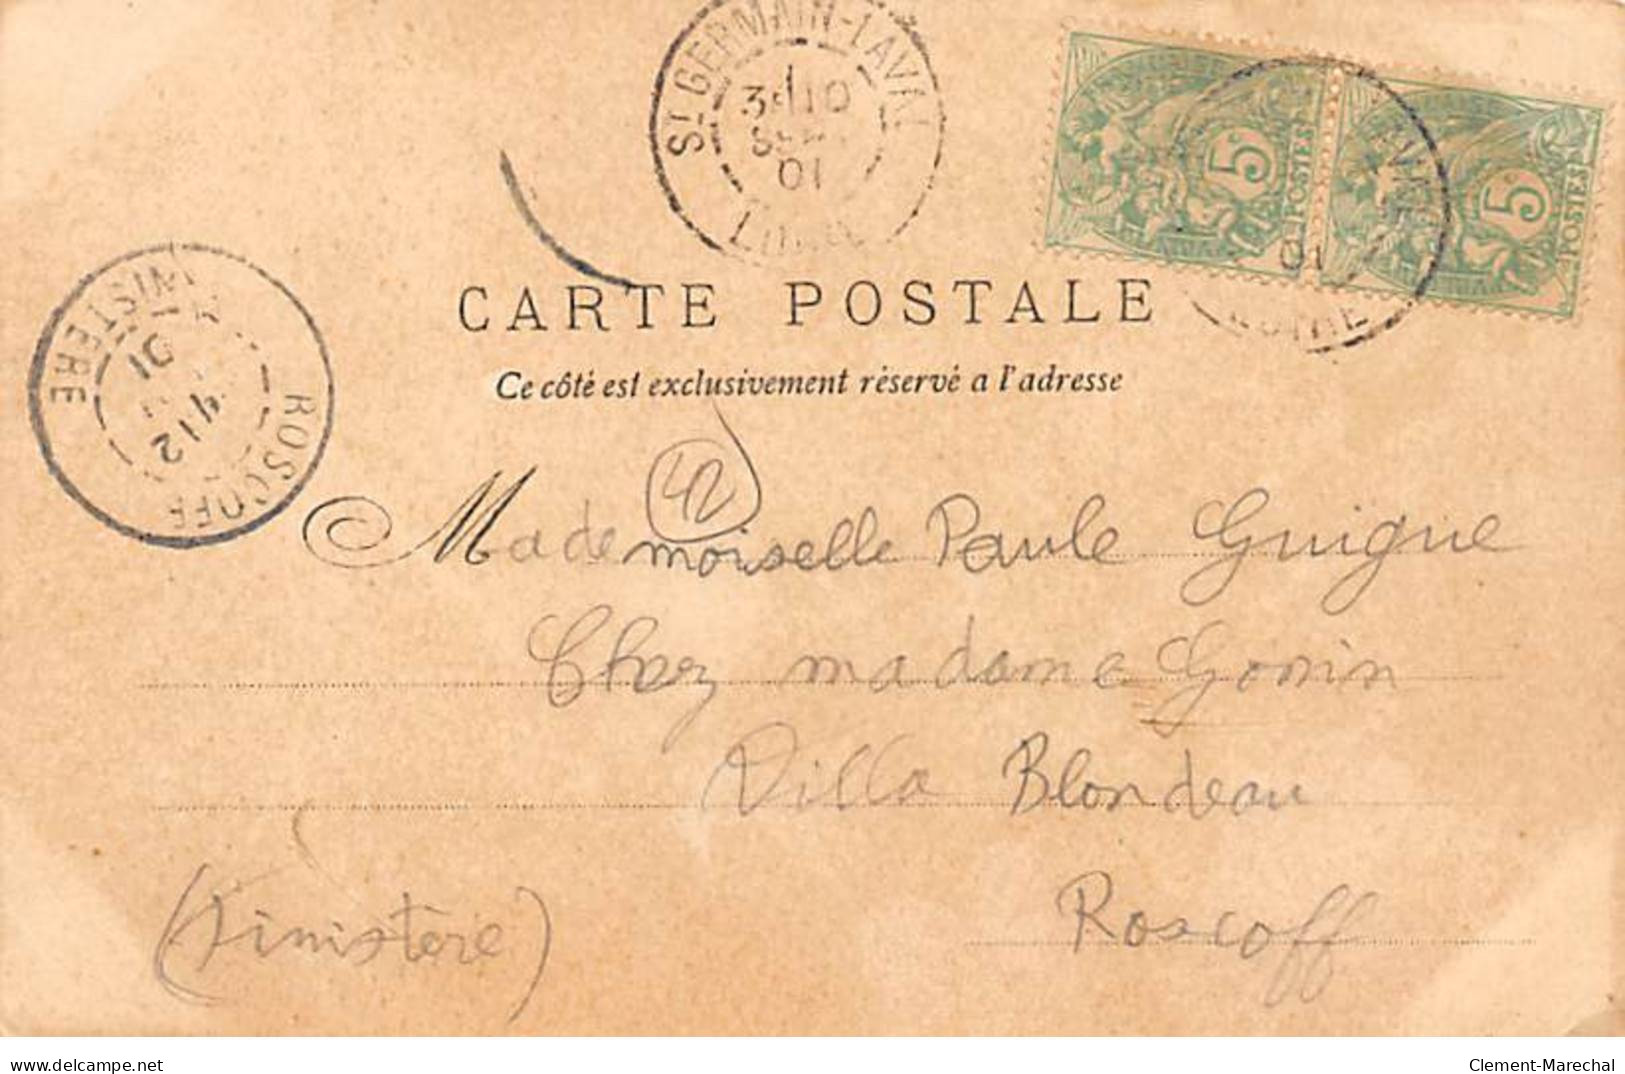 ST GERMAIN-LAVAL
3E/10
SEPT
01
LOIRE
5
POSTES
5
POSTES
LAVAL
01
LOIRE
CARTE POSTALE
Ce côté est exclusivement réservé a l'adresse
ROSCOFF
FINISTERE
12
01
42
Mademoiselle Paule Guigue
Chez madame Gonin
Villa Blondeau
Roscoff
(Finistere)
delcampe.net
Clement-Marechal